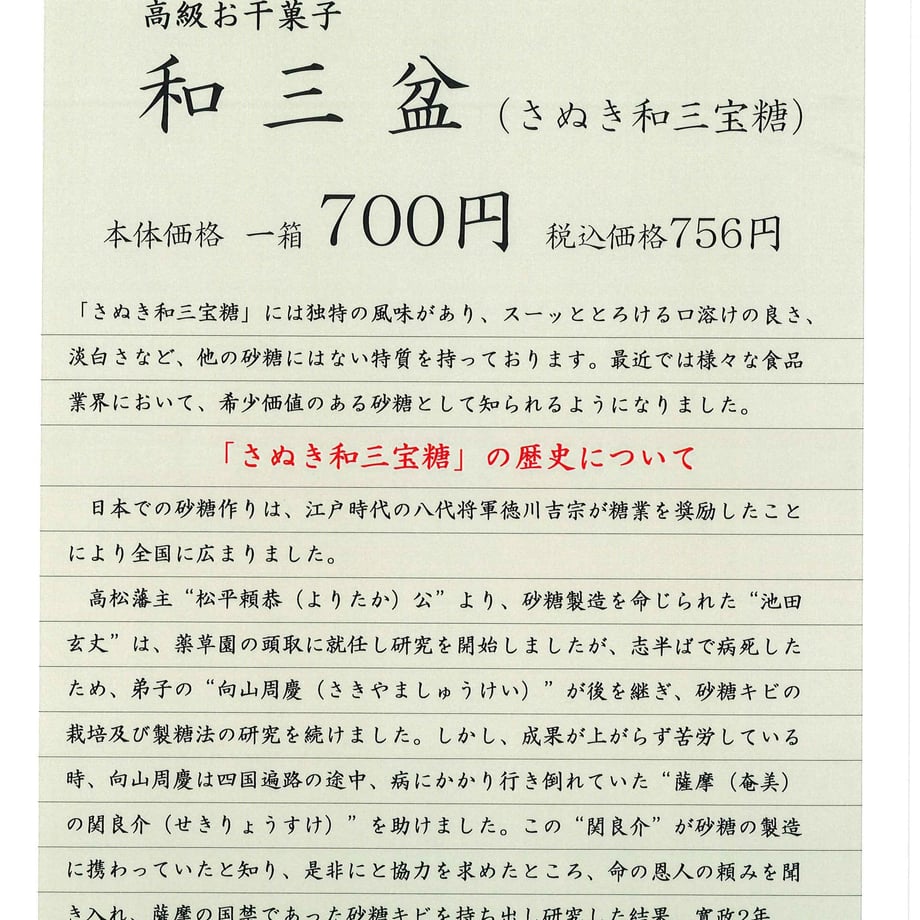 高級お干菓子
和三盆（さぬき和三宝糖）
本体価格 一箱 700円 税込価格756円
「さぬき和三宝糖」には独特の風味があり、スーッととろける口溶けの良さ、
淡白さなど、他の砂糖にはない特質を持っております。最近では様々な食品
業界において、希少価値のある砂糖として知られるようになりました。
「さぬき和三宝糖」の歴史について
日本での砂糖作りは、江戸時代の八代将軍徳川吉宗が糖業を奨励したこと
により全国に広まりました。
高松藩主“松平頼恭（よりたか）公”より、砂糖製造を命じられた“池田
玄丈”は、薬草園の頭取に就任し研究を開始しましたが、志半ばで病死した
ため、弟子の“向山周慶（さきやましゅうけい）”が後を継ぎ、砂糖キビの
栽培及び製糖法の研究を続けました。しかし、成果が上がらず苦労している
時、向山周慶は四国遍路の途中、病にかかり行き倒れていた“薩摩（奄美）
の関良介（せきりょうすけ）”を助けました。この“関良介”が砂糖の製造
に携わっていたと知り、是非にと協力を求めたところ、命の恩人の頼みを聞
き入れ、薩摩の国禁であった砂糖キビを持ち出し研究した結果、寛政2年